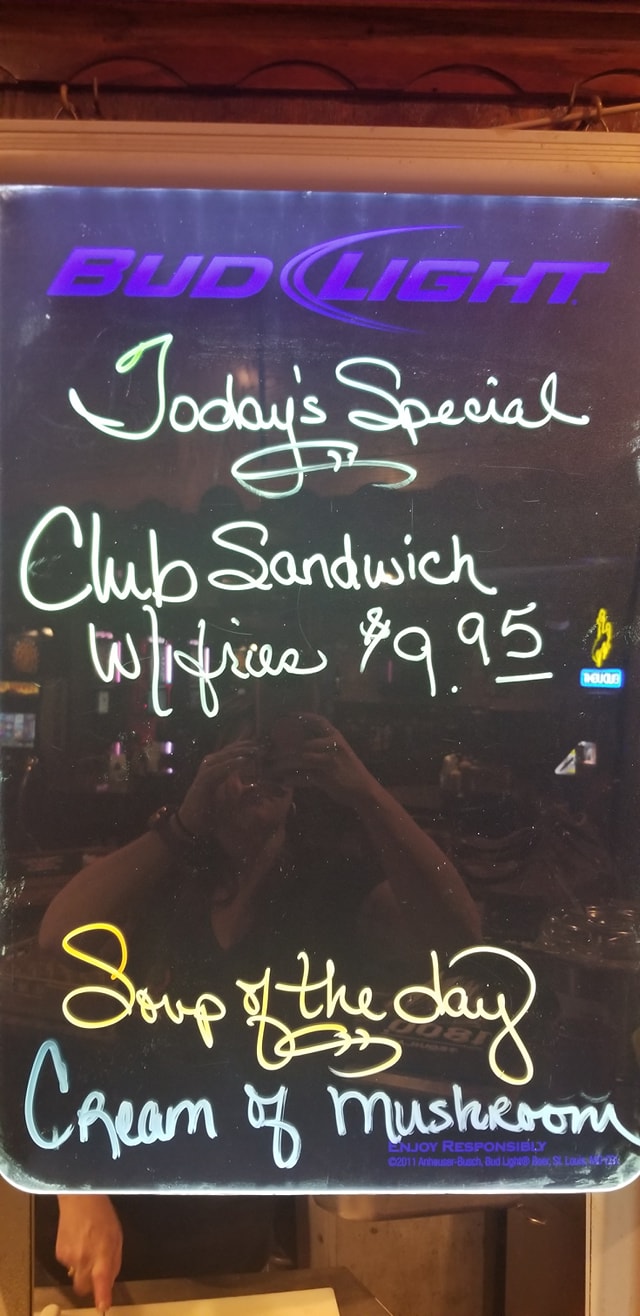 BUD LIGHT
Today's Special
Club Sandwich
W/ fries $9.95
Soup of the day
Cream of Mushroom
ENJOY RESPONSIBLY
©2011 Anheuser-Busch, Bud Light® Beer, St. Louis